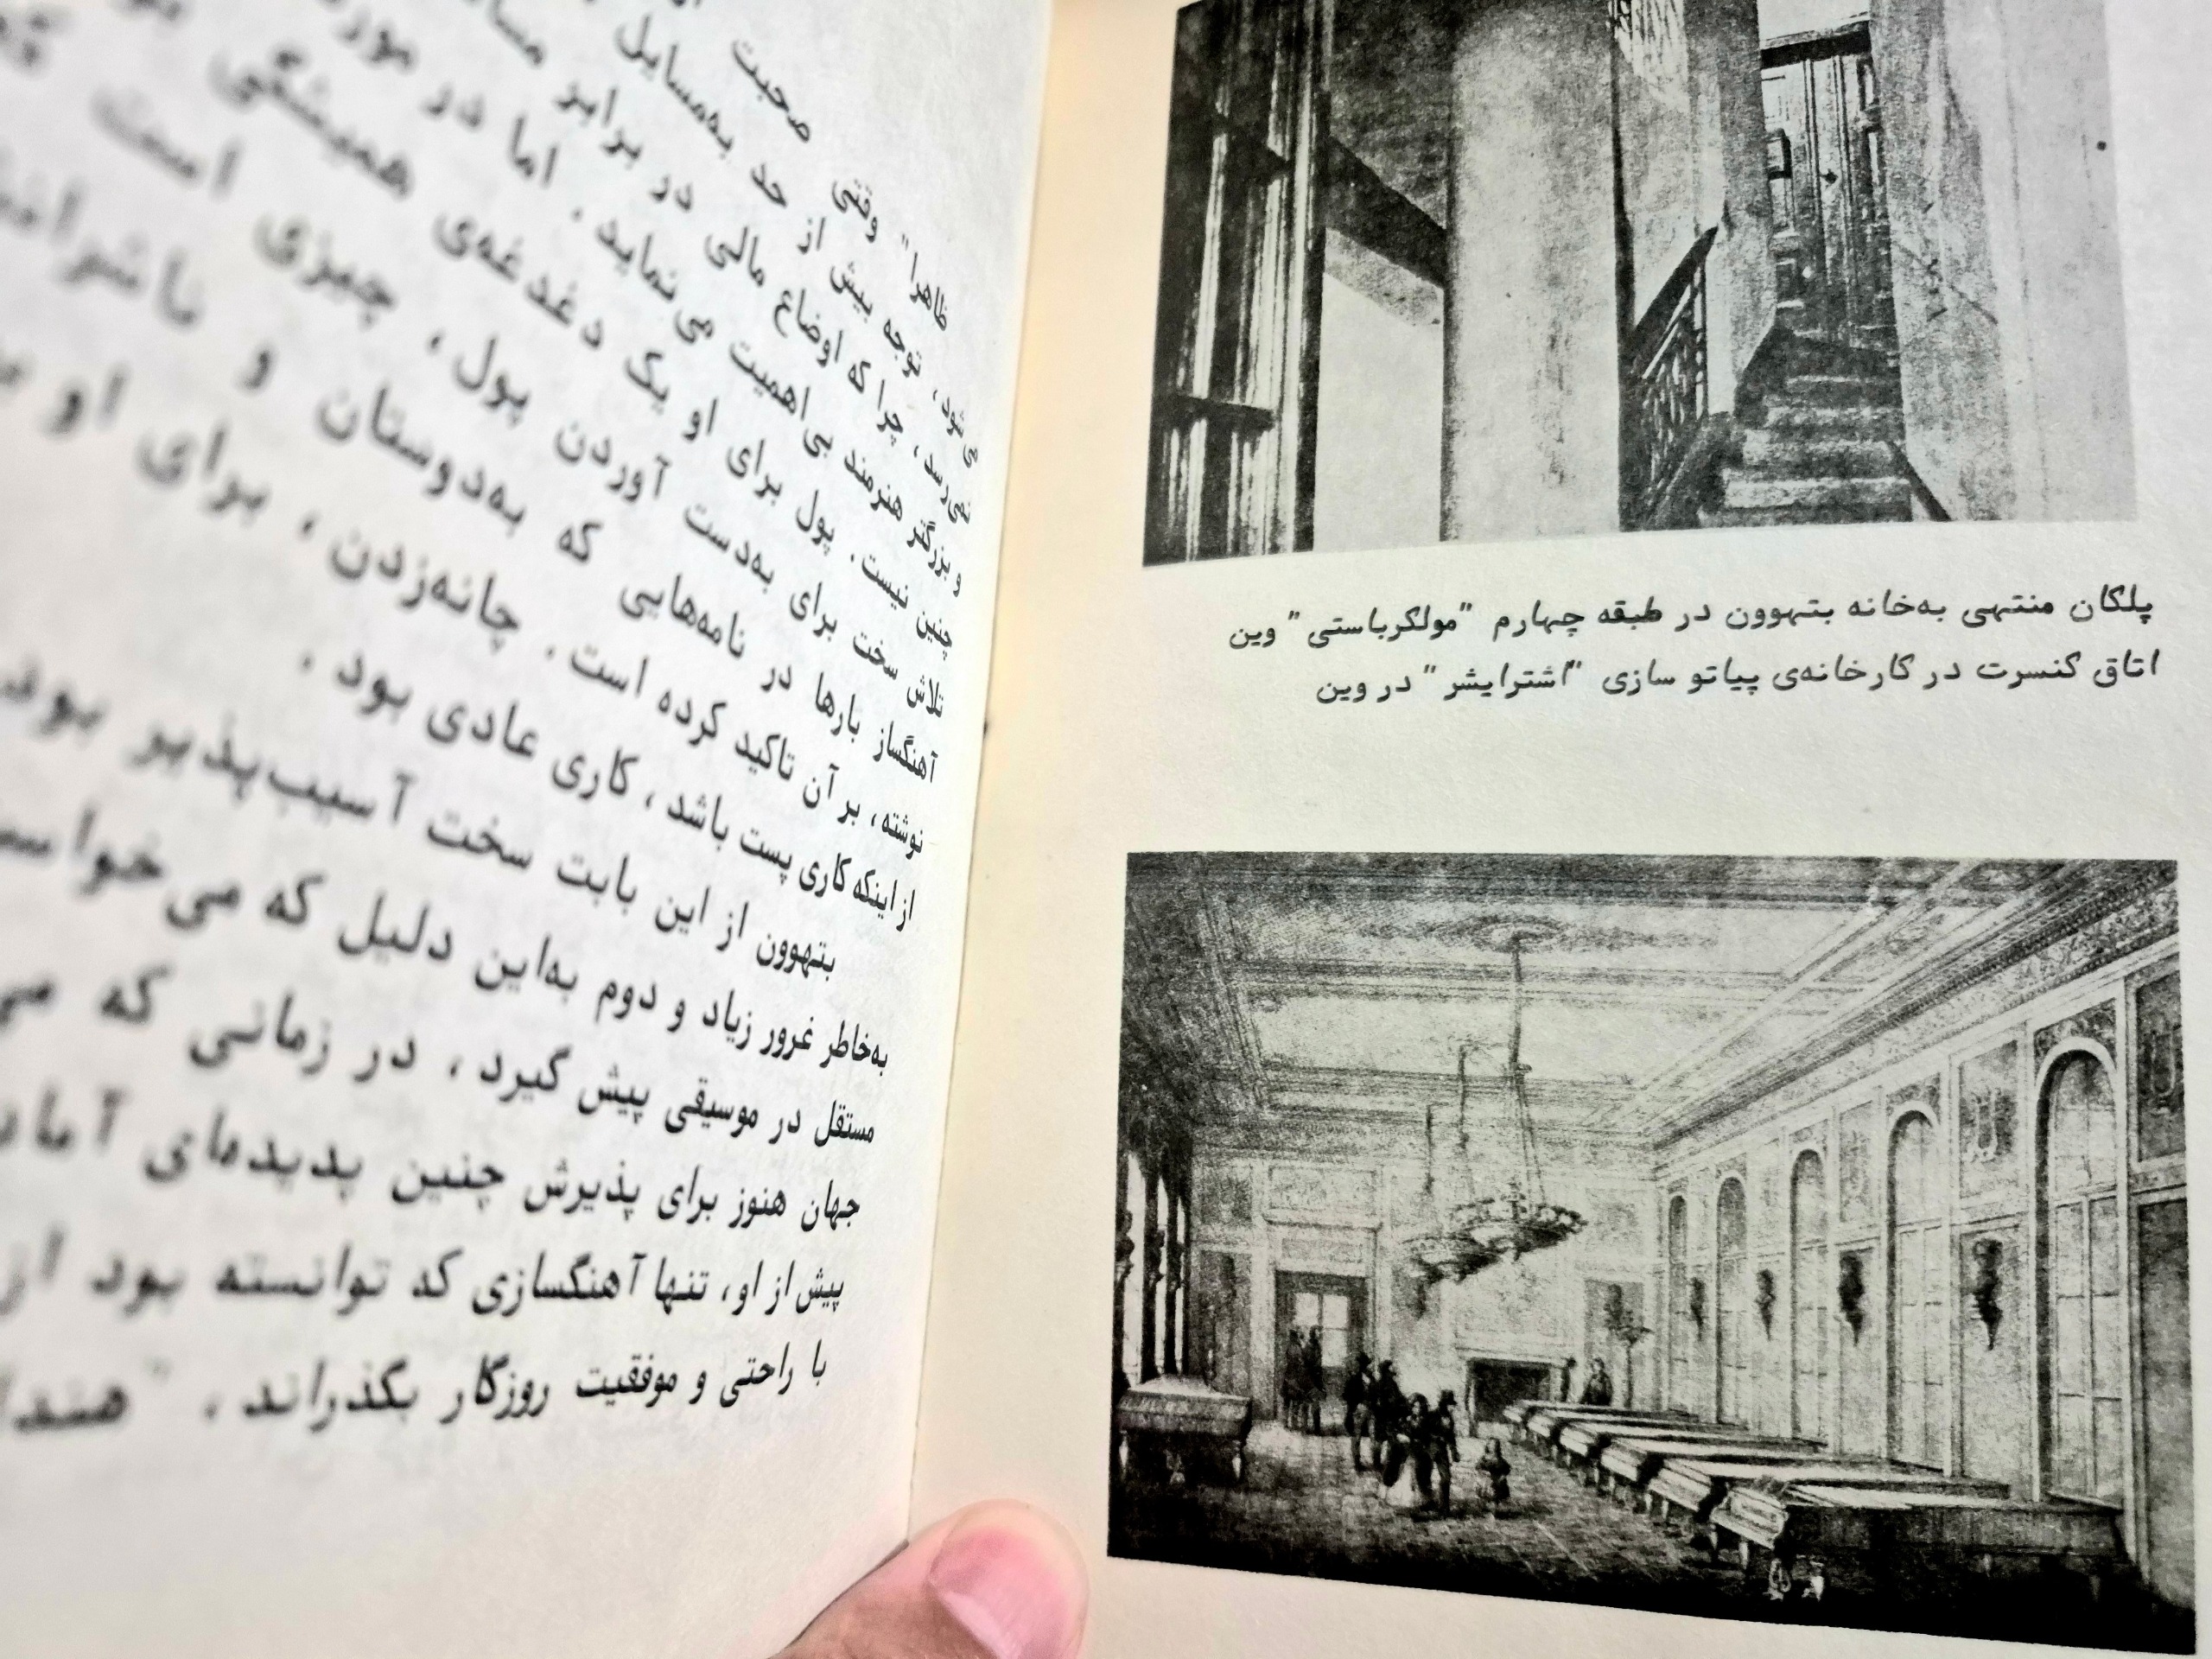 پلکان منتهی به‌خانه بتهوون در طبقه چهارم "مولکرباستی" وین
اتاق کنسرت در کارخانه‌ی پیاتو سازی "اشترایشر" در وین
صحبت
ظاهرا" وقتی
می‌شود، توجه بیش از حد به‌مسایل
نمی‌رسد، چرا که اوضاع مالی در برابر
و بزرگتر هنرمند بی‌اهمیت می‌نماید. اما در مورد
چنین نیست. پول برای او یک دغدغه‌ی همیشگی
تلاش سخت برای به‌دست آوردن پول، چیزی است
آهنگساز بارها در نامه‌هایی که به‌دوستان و ناشرانش
نوشته، بر آن تاکید کرده است. چانه‌زدن، برای او
از اینکه کاری پست باشد، کاری عادی بود.
بتهوون از این بابت سخت آسیب‌پذیر بود
به‌خاطر غرور زیاد و دوم به‌این دلیل که
مستقل در موسیقی پیش گیرد، در زمانی که
جهان هنوز برای پذیرش چنین پدیده‌ای
پیش از او، تنها آهنگسازی کد توانسته بود از
با راحتی و موفقیت روزگار بگذراند،